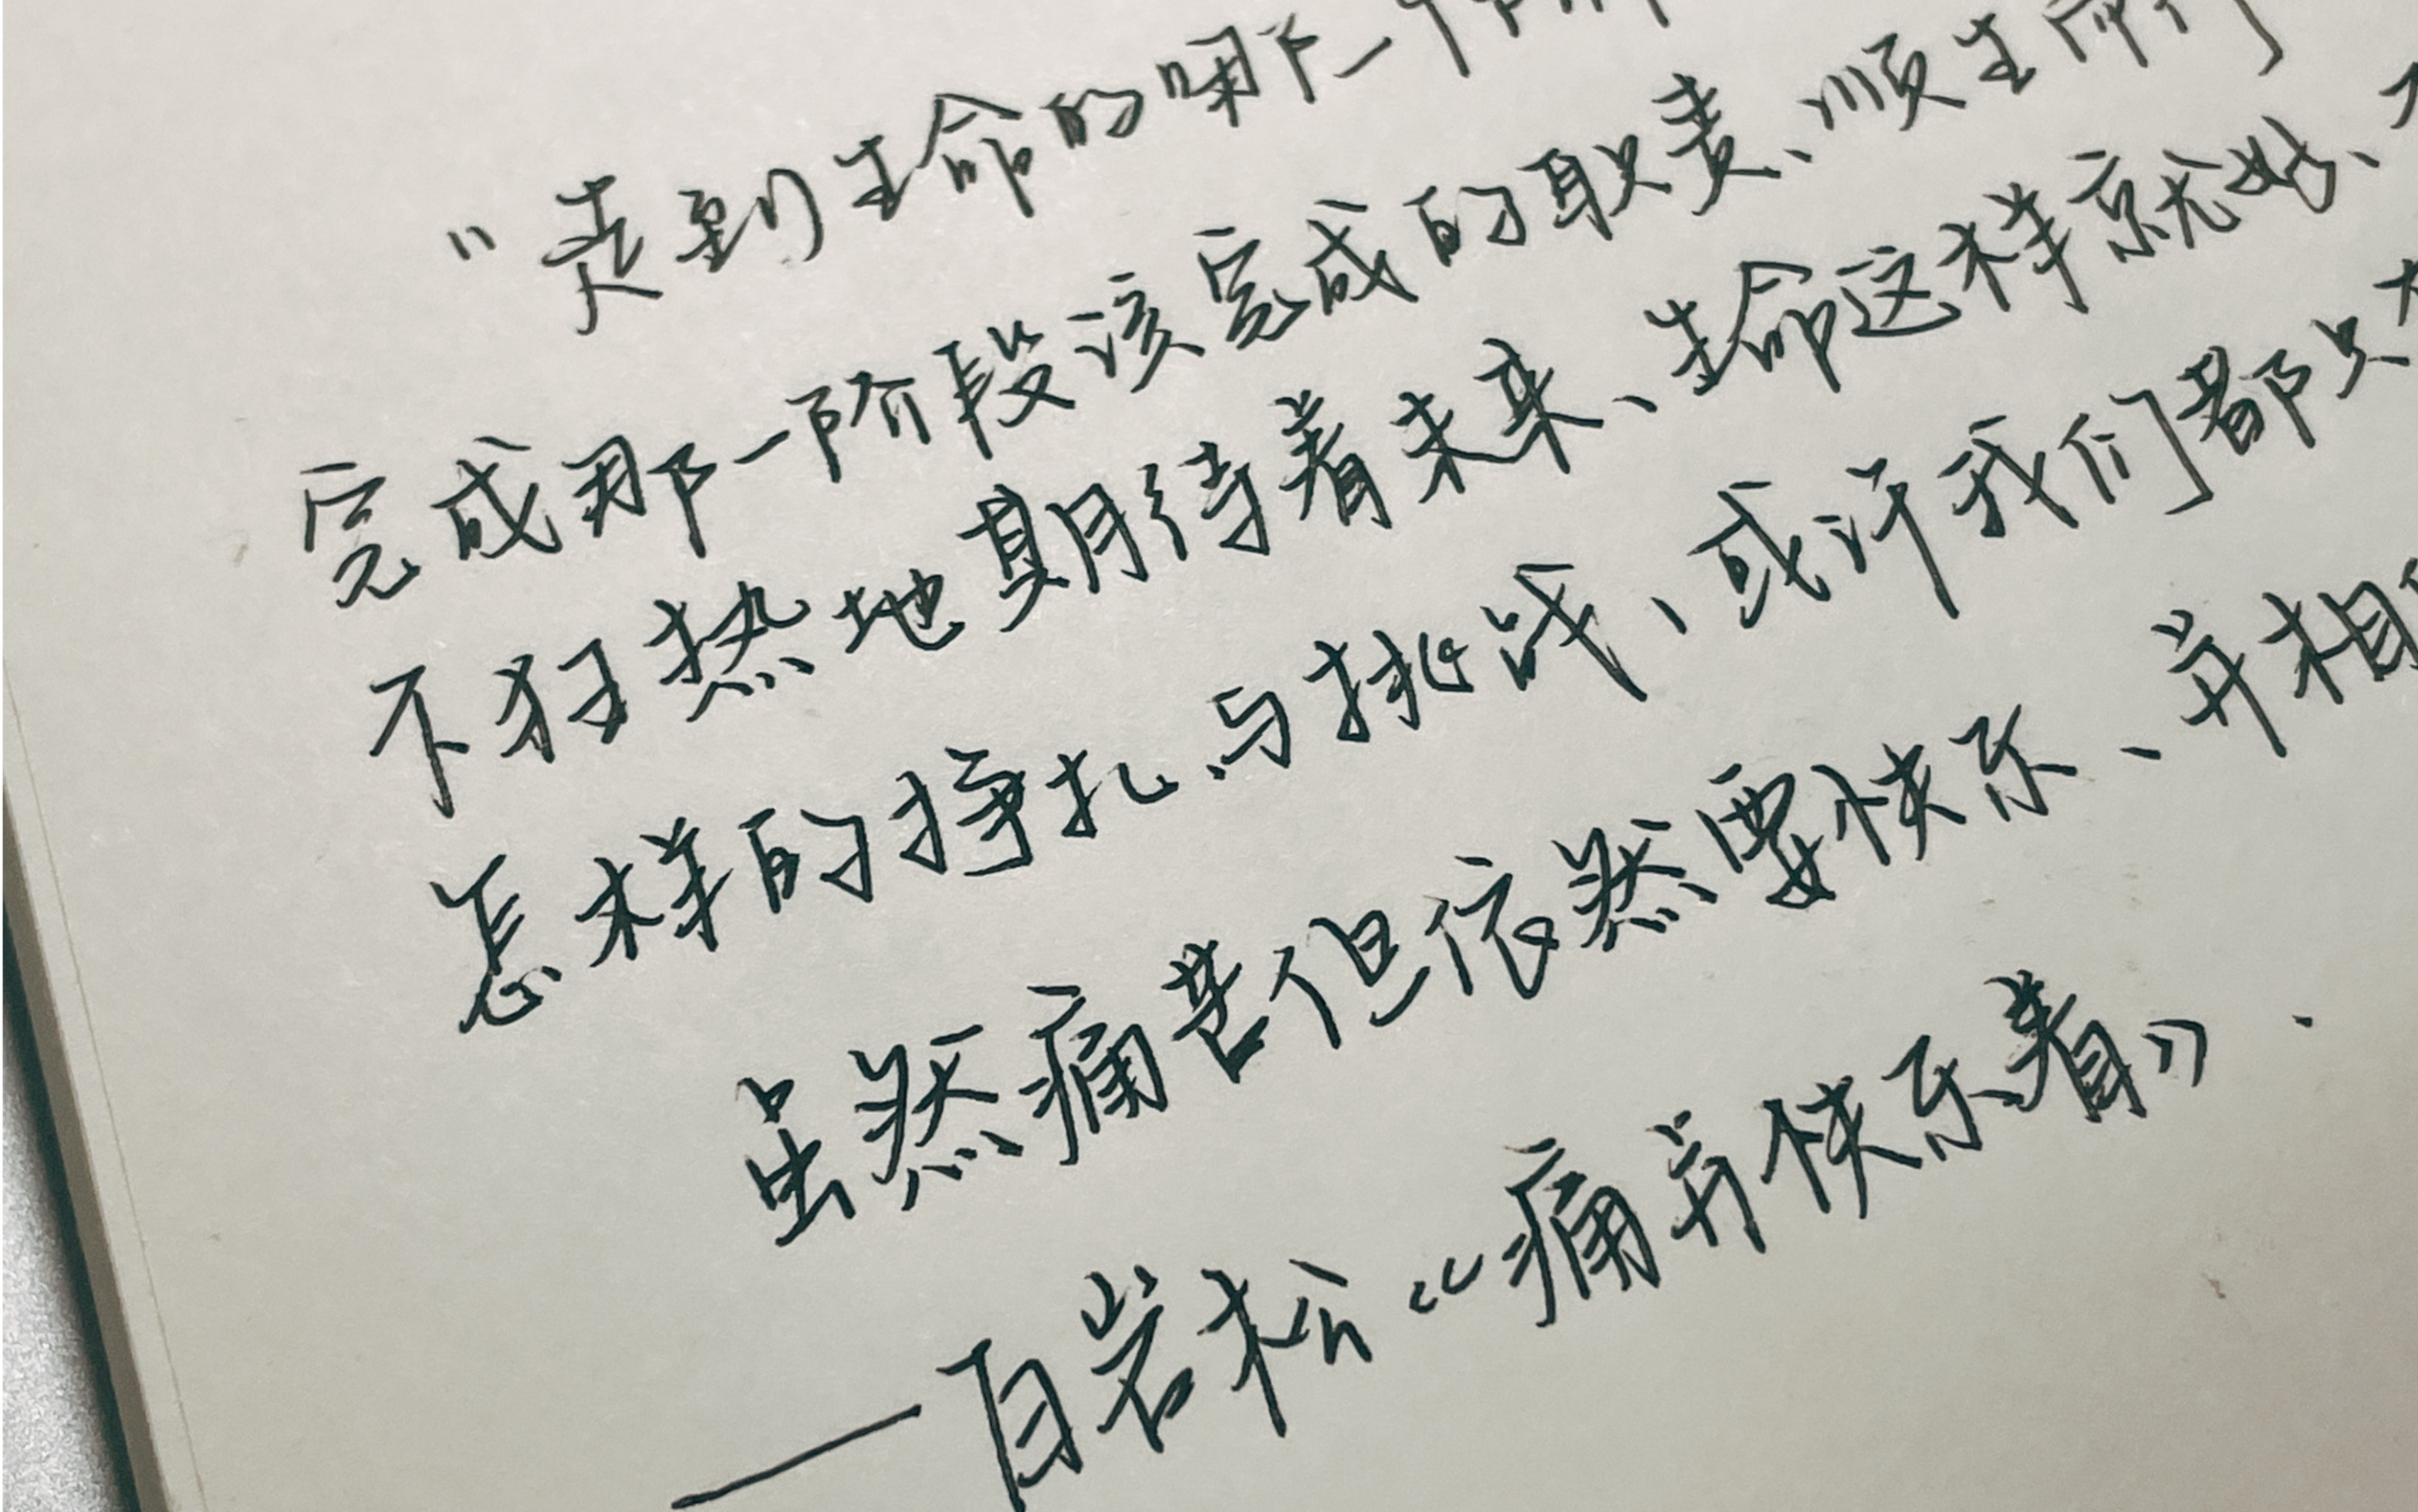 “走到生命的哪一个
完成那一阶段该完成的职责、顺生而行
不狂热地期待着未来、生命这样就好、
怎样的挣扎与挑战、或许我们都只
虽然痛苦但依然要快乐、并相
——白岩松《痛并快乐着》.